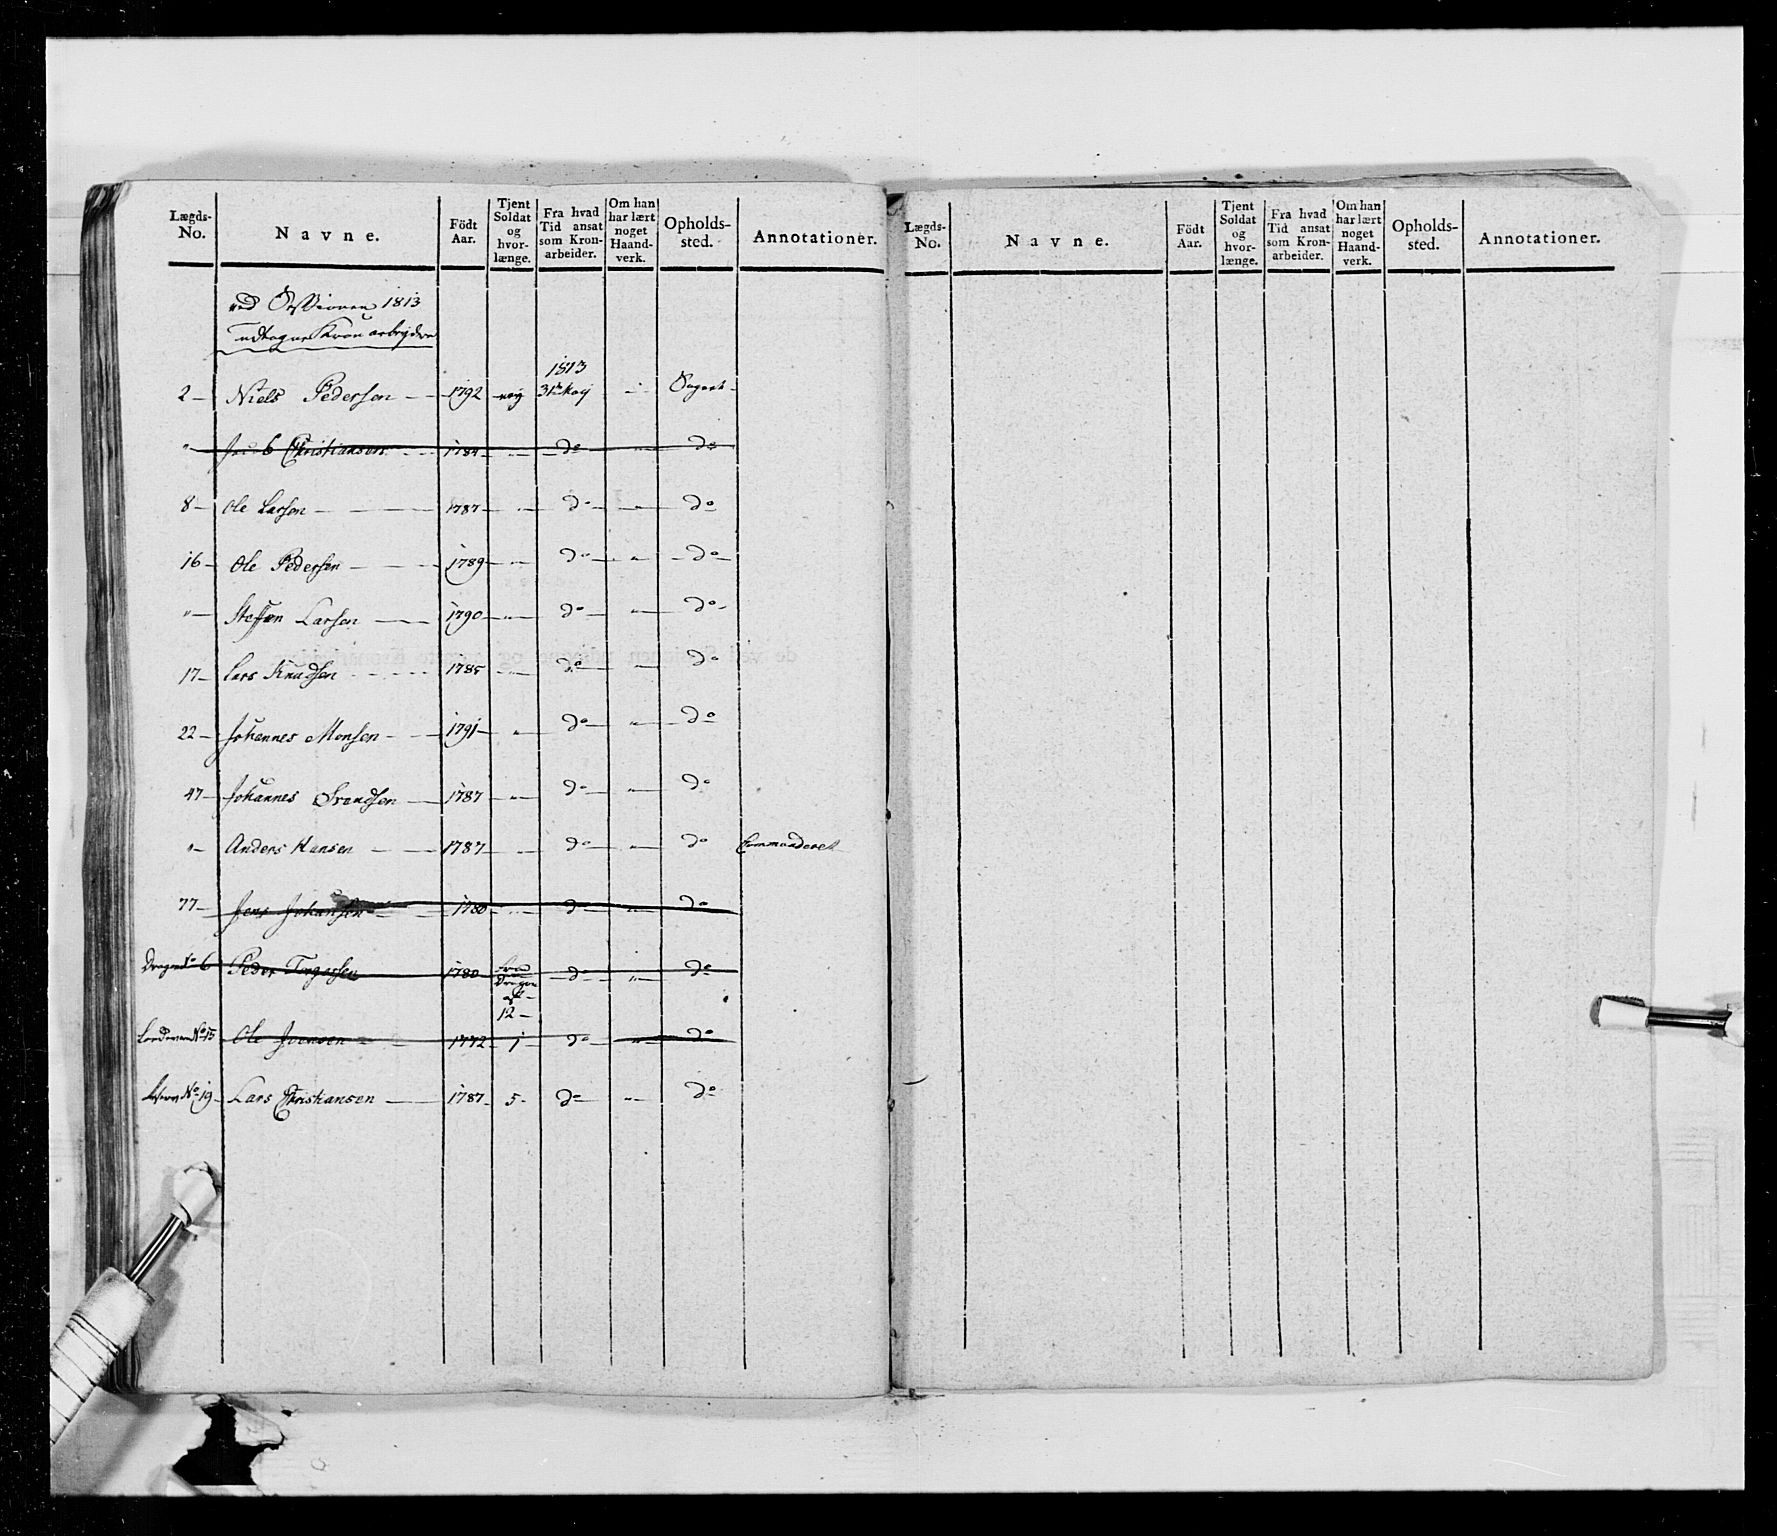 Lægds-No. Navne. Födt Aar. Tjent Soldat og hvor-længe. Fra hvad Tid ansat som Kron-arbeider. Om han har lært noget Haand-verk. Opholds-sted. Annotationer.
ved Sessionen 1813
udtagne Kron arbeydere
1813
2 — Niels Pedersen — 1792 ney 31te Maij " Sognet
" Christiansen — 1784 " do " do
8 — Ole Larsen — 1787 " do " do
16 — Ole Pedersen — 1789 " do " do
" — Steffen Larsen — 1790 " do " do
17 — Lars Knudsen — 1785 " do " do
22 — Johannes Monsen — 1791 " do " do
47 — Johannes Svendsen — 1787 " do " do
" — Anders Hansen — 1787 " do " do Commanderet
77 — Jens Johansen — 1780 " do " do
No 6 Peder Torgersen 1780 fra Dragon do " do
12 —
No 15 Ole 1772 1 do " do
No 19 Lars Christiansen — 1787 5 do " do
Lægds-No. Navne. Födt Aar. Tjent Soldat og hvor-længe. Fra hvad Tid ansat som Kron-arbeider. Om han har lært noget Haand-verk. Opholds-sted. Annotationer.